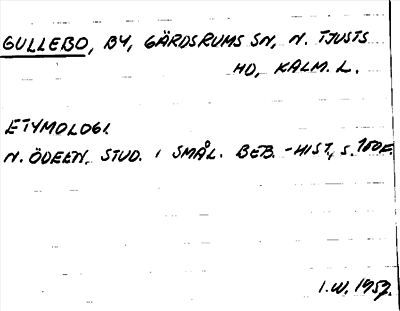 GULLEBO, BY, GÄRDSRUMS SN, N. TJUSTS
HD, KALM. L.
ETYMOLOGI
N. ÖDEEN, STUD. I SMÅL. BEB.-HIST, S. 100F.
I.W. 1957.